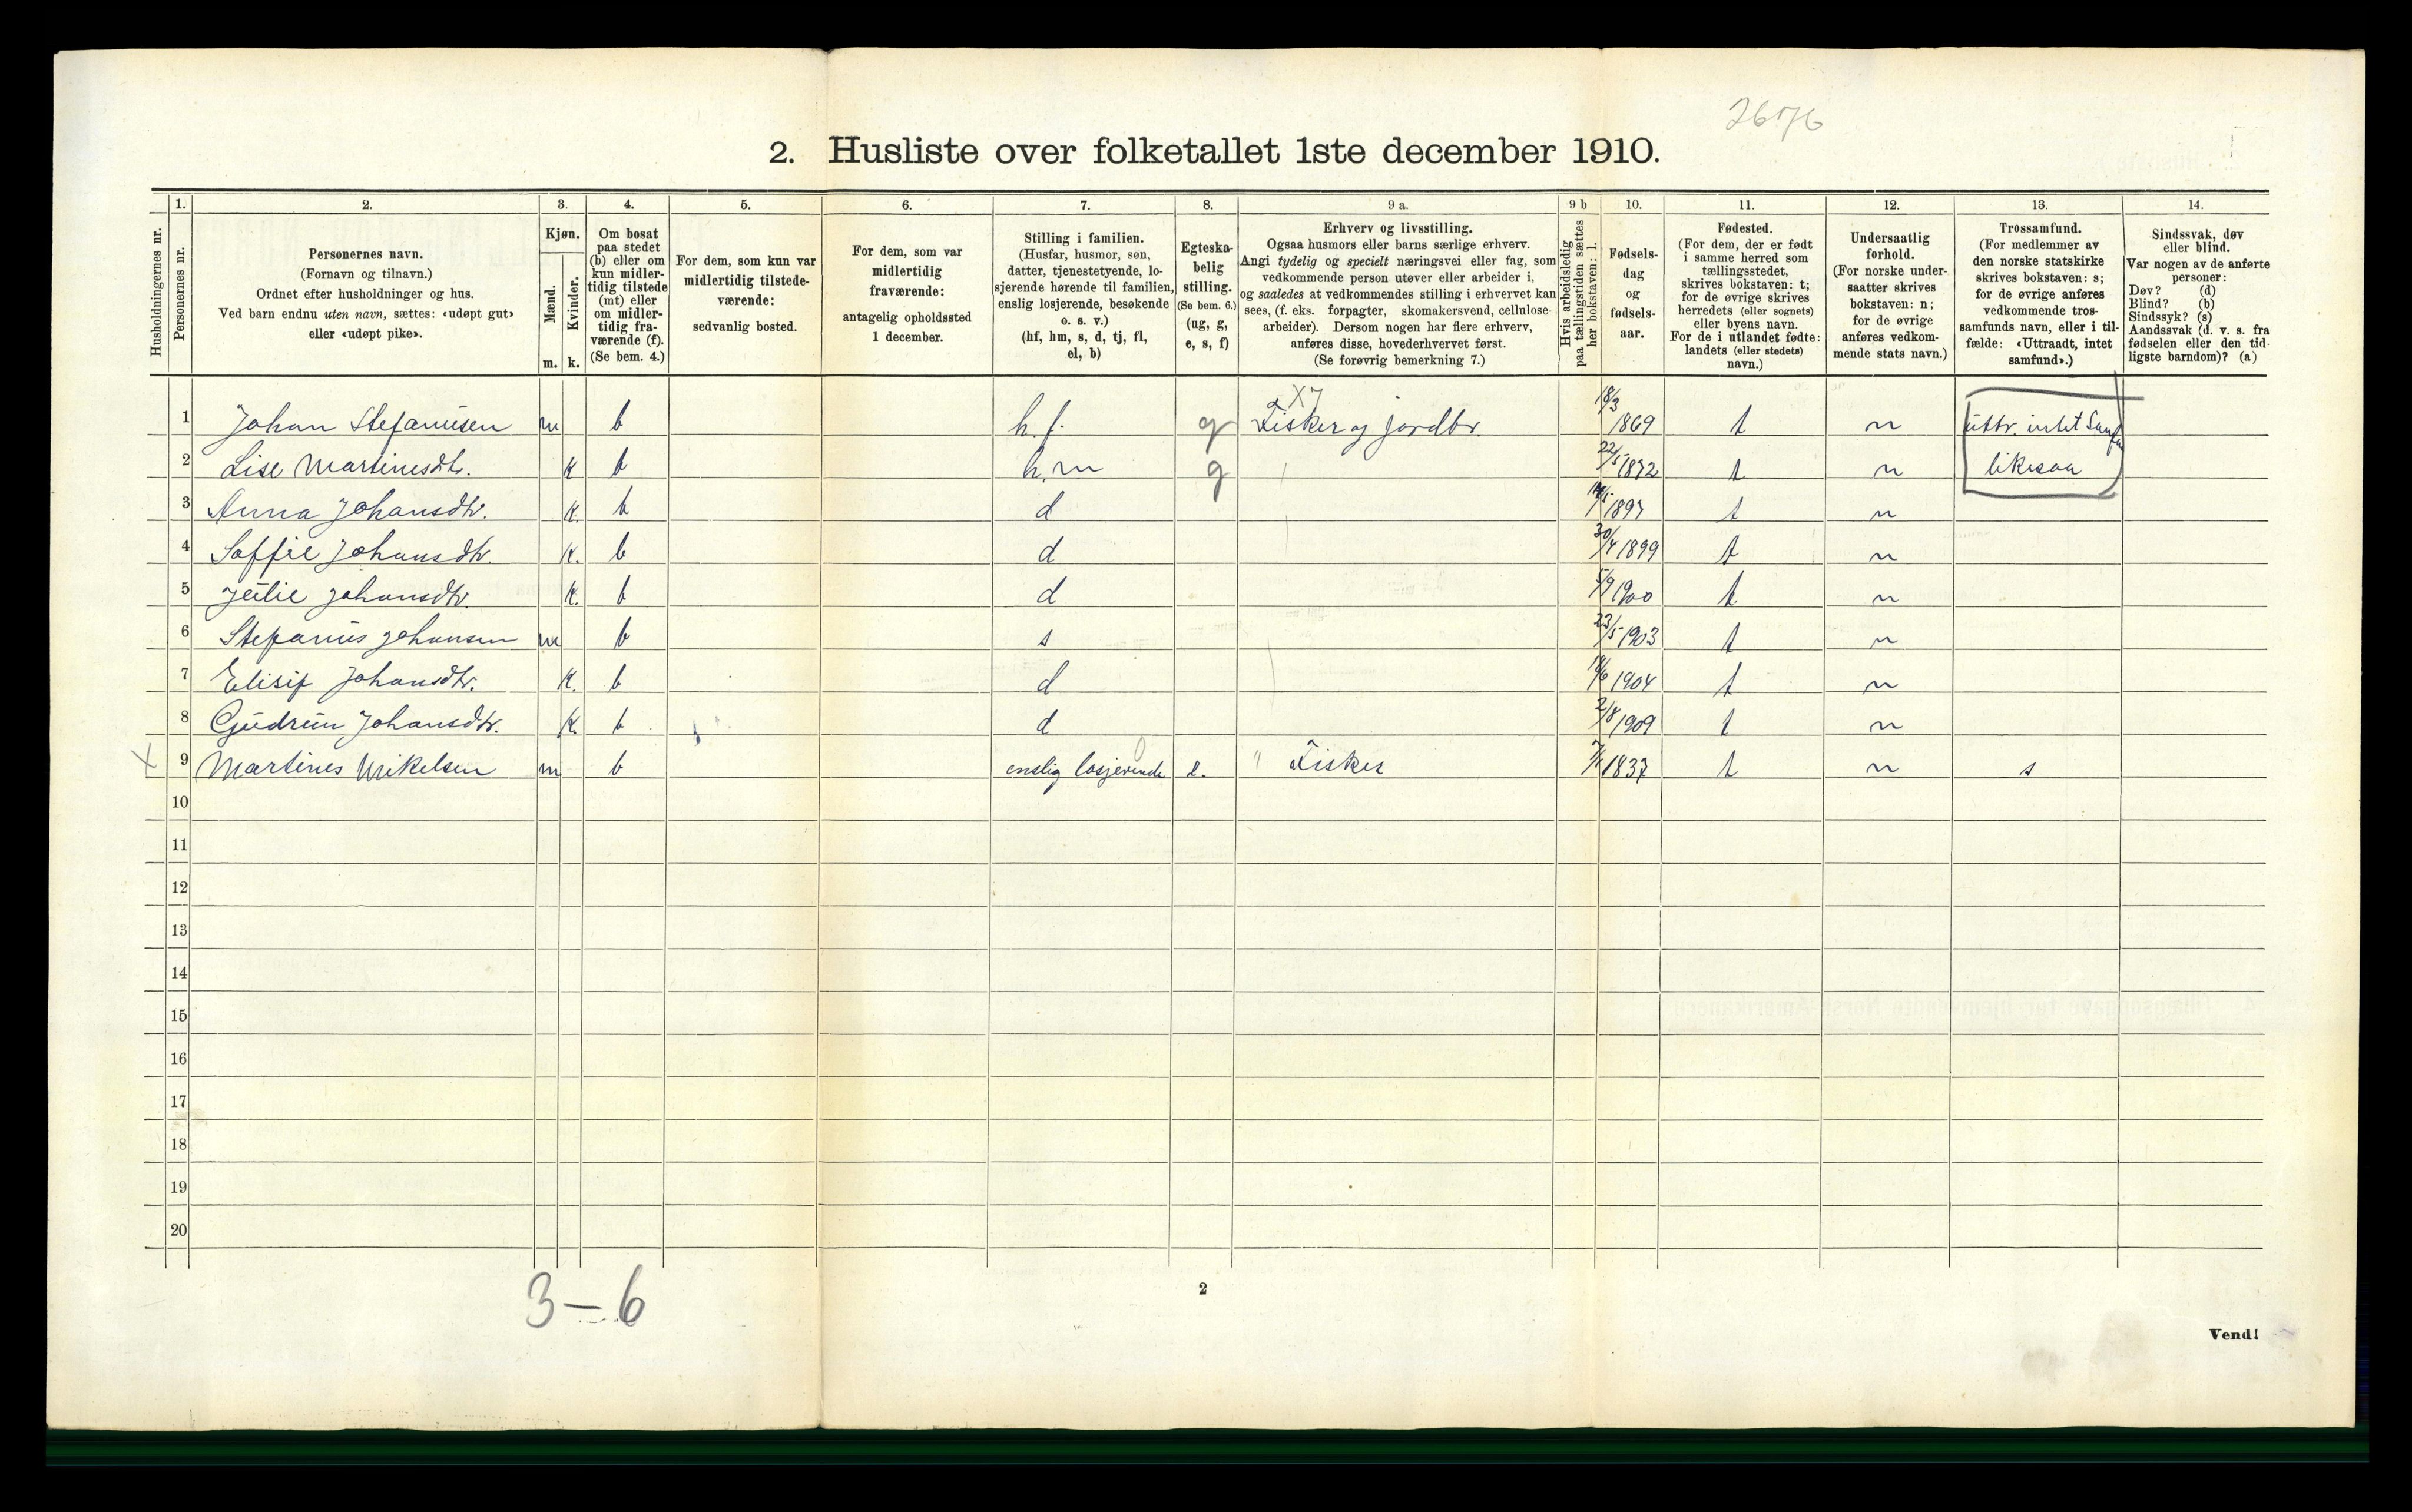 2676
2. Husliste over folketallet 1ste december 1910.
Husholdningernes nr.
1.
Personernes nr.
2.
Personernes navn.
(Fornavn og tilnavn.)
Ordnet efter husholdninger og hus.
Ved barn endnu uten navn, sættes: «udøpt gut»
eller «udøpt pike».
3.
Kjøn.
Mænd.
Kvinder.
m. k.
4.
Om bosat
paa stedet
(b) eller om
kun midler-
tidig tilstede
(mt) eller
om midler-
tidig fra-
værende (f).
(Se bem. 4.)
5.
For dem, som kun var
midlertidig tilstede-
værende:
sedvanlig bosted.
6.
For dem, som var
midlertidig
fraværende:
antagelig opholdssted
1 december.
7.
Stilling i familien.
(Husfar, husmor, søn,
datter, tjenestetyende, lo-
sjerende hørende til familien,
enslig losjerende, besøkende
o. s. v.)
(hf, hm, s, d, tj, fl,
el, b)
8.
Egteska-
belig
stilling.
(Se bem. 6.)
(ug, g,
e, s, f)
9 a.
Erhverv og livsstilling.
Ogsaa husmors eller barns særlige erhverv.
Angi tydelig og specielt næringsvei eller fag, som
vedkommende person utøver eller arbeider i,
og saaledes at vedkommendes stilling i erhvervet kan
sees, (f. eks. forpagter, skomakersvend, cellulose-
arbeider). Dersom nogen har flere erhverv,
anføres disse, hovederhvervet først.
(Se forøvrig bemerkning 7.)
9 b
Hvis arbeidsledig
paa tællingstiden sættes
her bokstaven: l.
10.
Fødsels-
dag
og
fødsels-
aar.
11.
Fødested.
(For dem, der er født
i samme herred som
tællingsstedet,
skrives bokstaven: t;
for de øvrige skrives
herredets (eller sognets)
eller byens navn.
For de i utlandet fødte:
landets (eller stedets)
navn.)
12.
Undersaatlig
forhold.
(For norske under-
saatter skrives
bokstaven: n;
for de øvrige
anføres vedkom-
mende stats navn.)
13.
Trossamfund.
(For medlemmer av
den norske statskirke
skrives bokstaven: s;
for de øvrige anføres
vedkommende tros-
samfunds navn, eller i til-
fælde: «Uttraadt, intet
samfund».)
14.
Sindssvak, døv
eller blind.
Var nogen av de anførte
personer:
Døv? (d)
Blind? (b)
Sindssyk? (s)
Aandssvak (d. v. s. fra
fødselen eller den tid-
ligste barndom)? (a)
X7
1 Johan Stefanusen m b h.f. g Fisker og jordbr. 18/3 1869 t n uttr. intet Samf
2 Lise Martinesdtr. k b h.m g 22/5 1872 t n likesaa
3 Anna Johansdtr. k. b d 1897 t n
4 Soffie Johansdtr. k. b d 30/4 1899 t n
5 Julie Johansdtr. k. b d 5/9 1900 t n
6 Stefanus Johansen m b s 23/5 1903 t n
7 Elisif Johansdtr. k. b d 18/6 1904 t n
8 Gudrun Johansdtr. k. b d 2/8 1909 t n
X 9 Martines Mikelsen m b enslig losjerende e. " Fisker 1837 t n s
10
11
12
13
14
15
16
17
18
19
20
3 - 6
2
Vend!